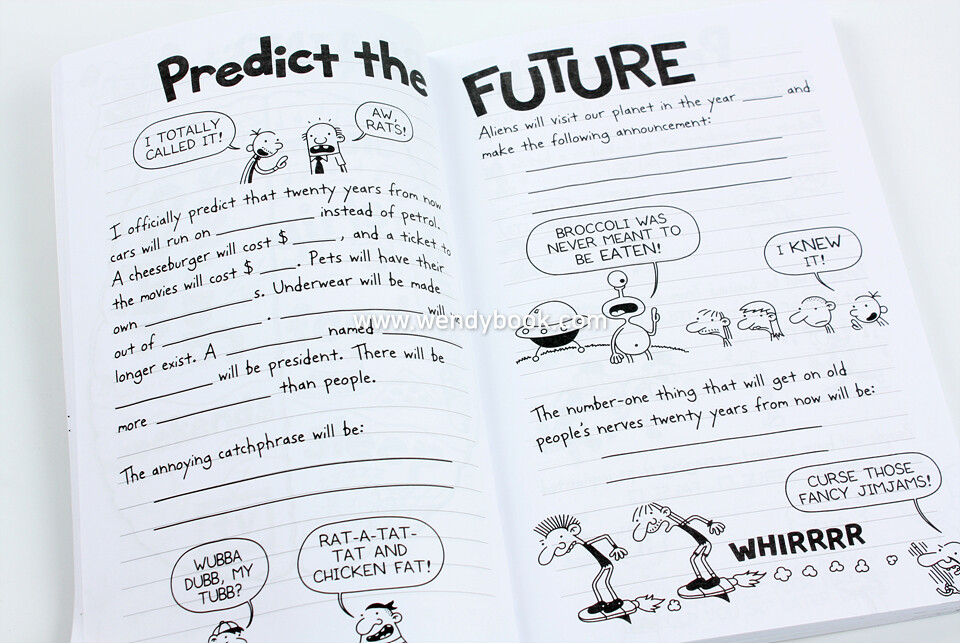 Predict the
I TOTALLY
CALLED IT!
AW,
RATS!
I officially predict that twenty years from now
cars will run on __________ instead of petrol.
A cheeseburger will cost $ _____, and a ticket to
the movies will cost $ ____. Pets will have their
own __________s. Underwear will be made
out of __________. __________ will
longer exist. A __________ named __________
__________ will be president. There will be
more __________ than people.
The annoying catchphrase will be:
WUBBA
DUBB, MY
TUBB?
RAT-A-TAT-
TAT AND
CHICKEN FAT!
FUTURE
Aliens will visit our planet in the year _____ and
make the following announcement:
BROCCOLI WAS
NEVER MEANT TO
BE EATEN!
I KNEW
IT!
www.wendybook.com
The number-one thing that will get on old
people's nerves twenty years from now will be:
CURSE THOSE
FANCY JIMJAMS!
WHIRRRR